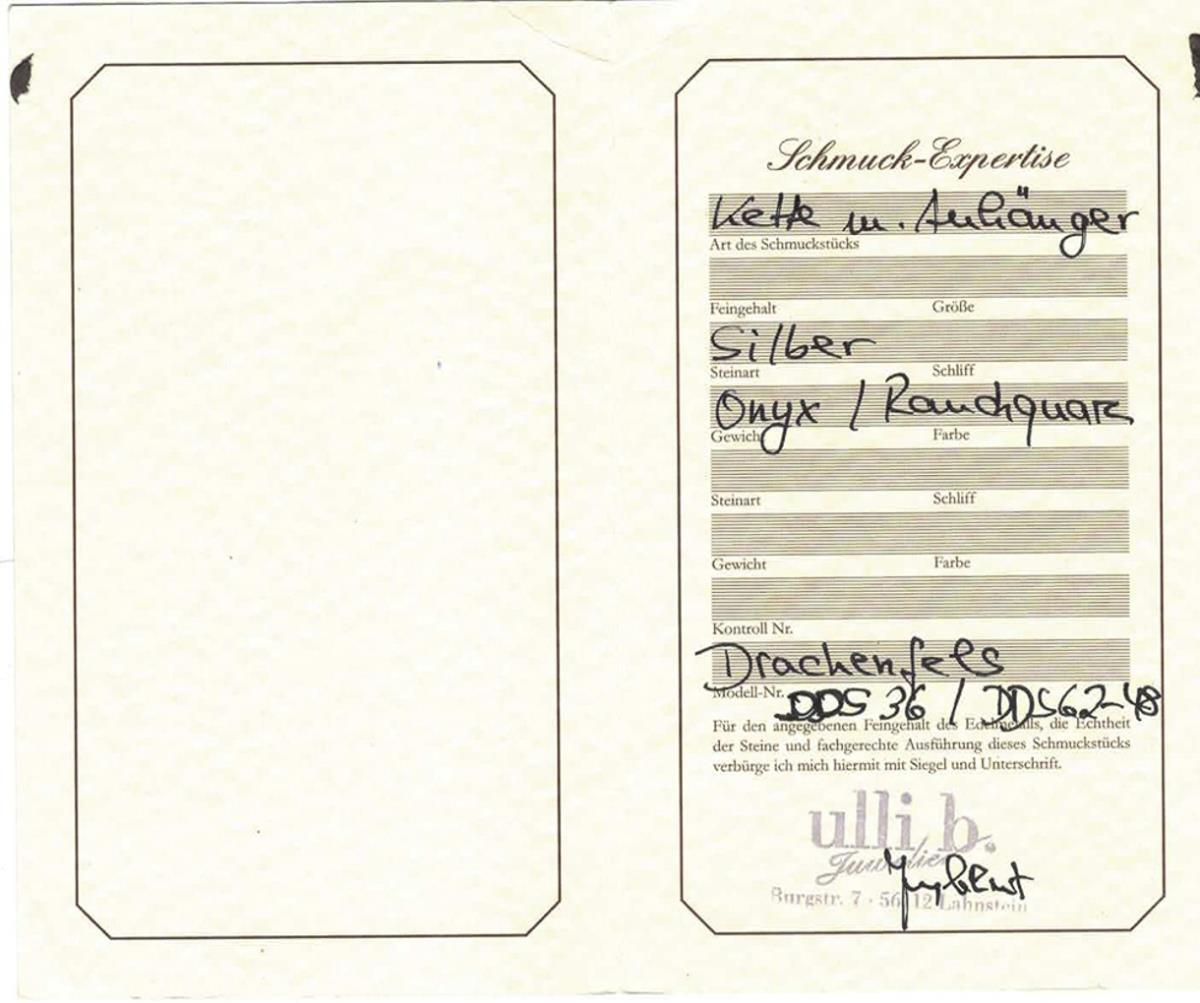 Schmuck-Expertise
Kette m. Anhänger
Art des Schmuckstücks
Feingehalt Größe
Silber
Steinart Schliff
Onyx / Rauchquarz
Gewicht Farbe
Steinart Schliff
Gewicht Farbe
Kontroll Nr.
Drachenfels
Modell-Nr. DDS 36 / DDS62-48
Für den angegebenen Feingehalt des Edelmetalls, die Echtheit
der Steine und fachgerechte Ausführung dieses Schmuckstücks
verbürge ich mich hiermit mit Siegel und Unterschrift.
ulli b.
Juwelier
Burgstr. 7 · 56112 Lahnstein